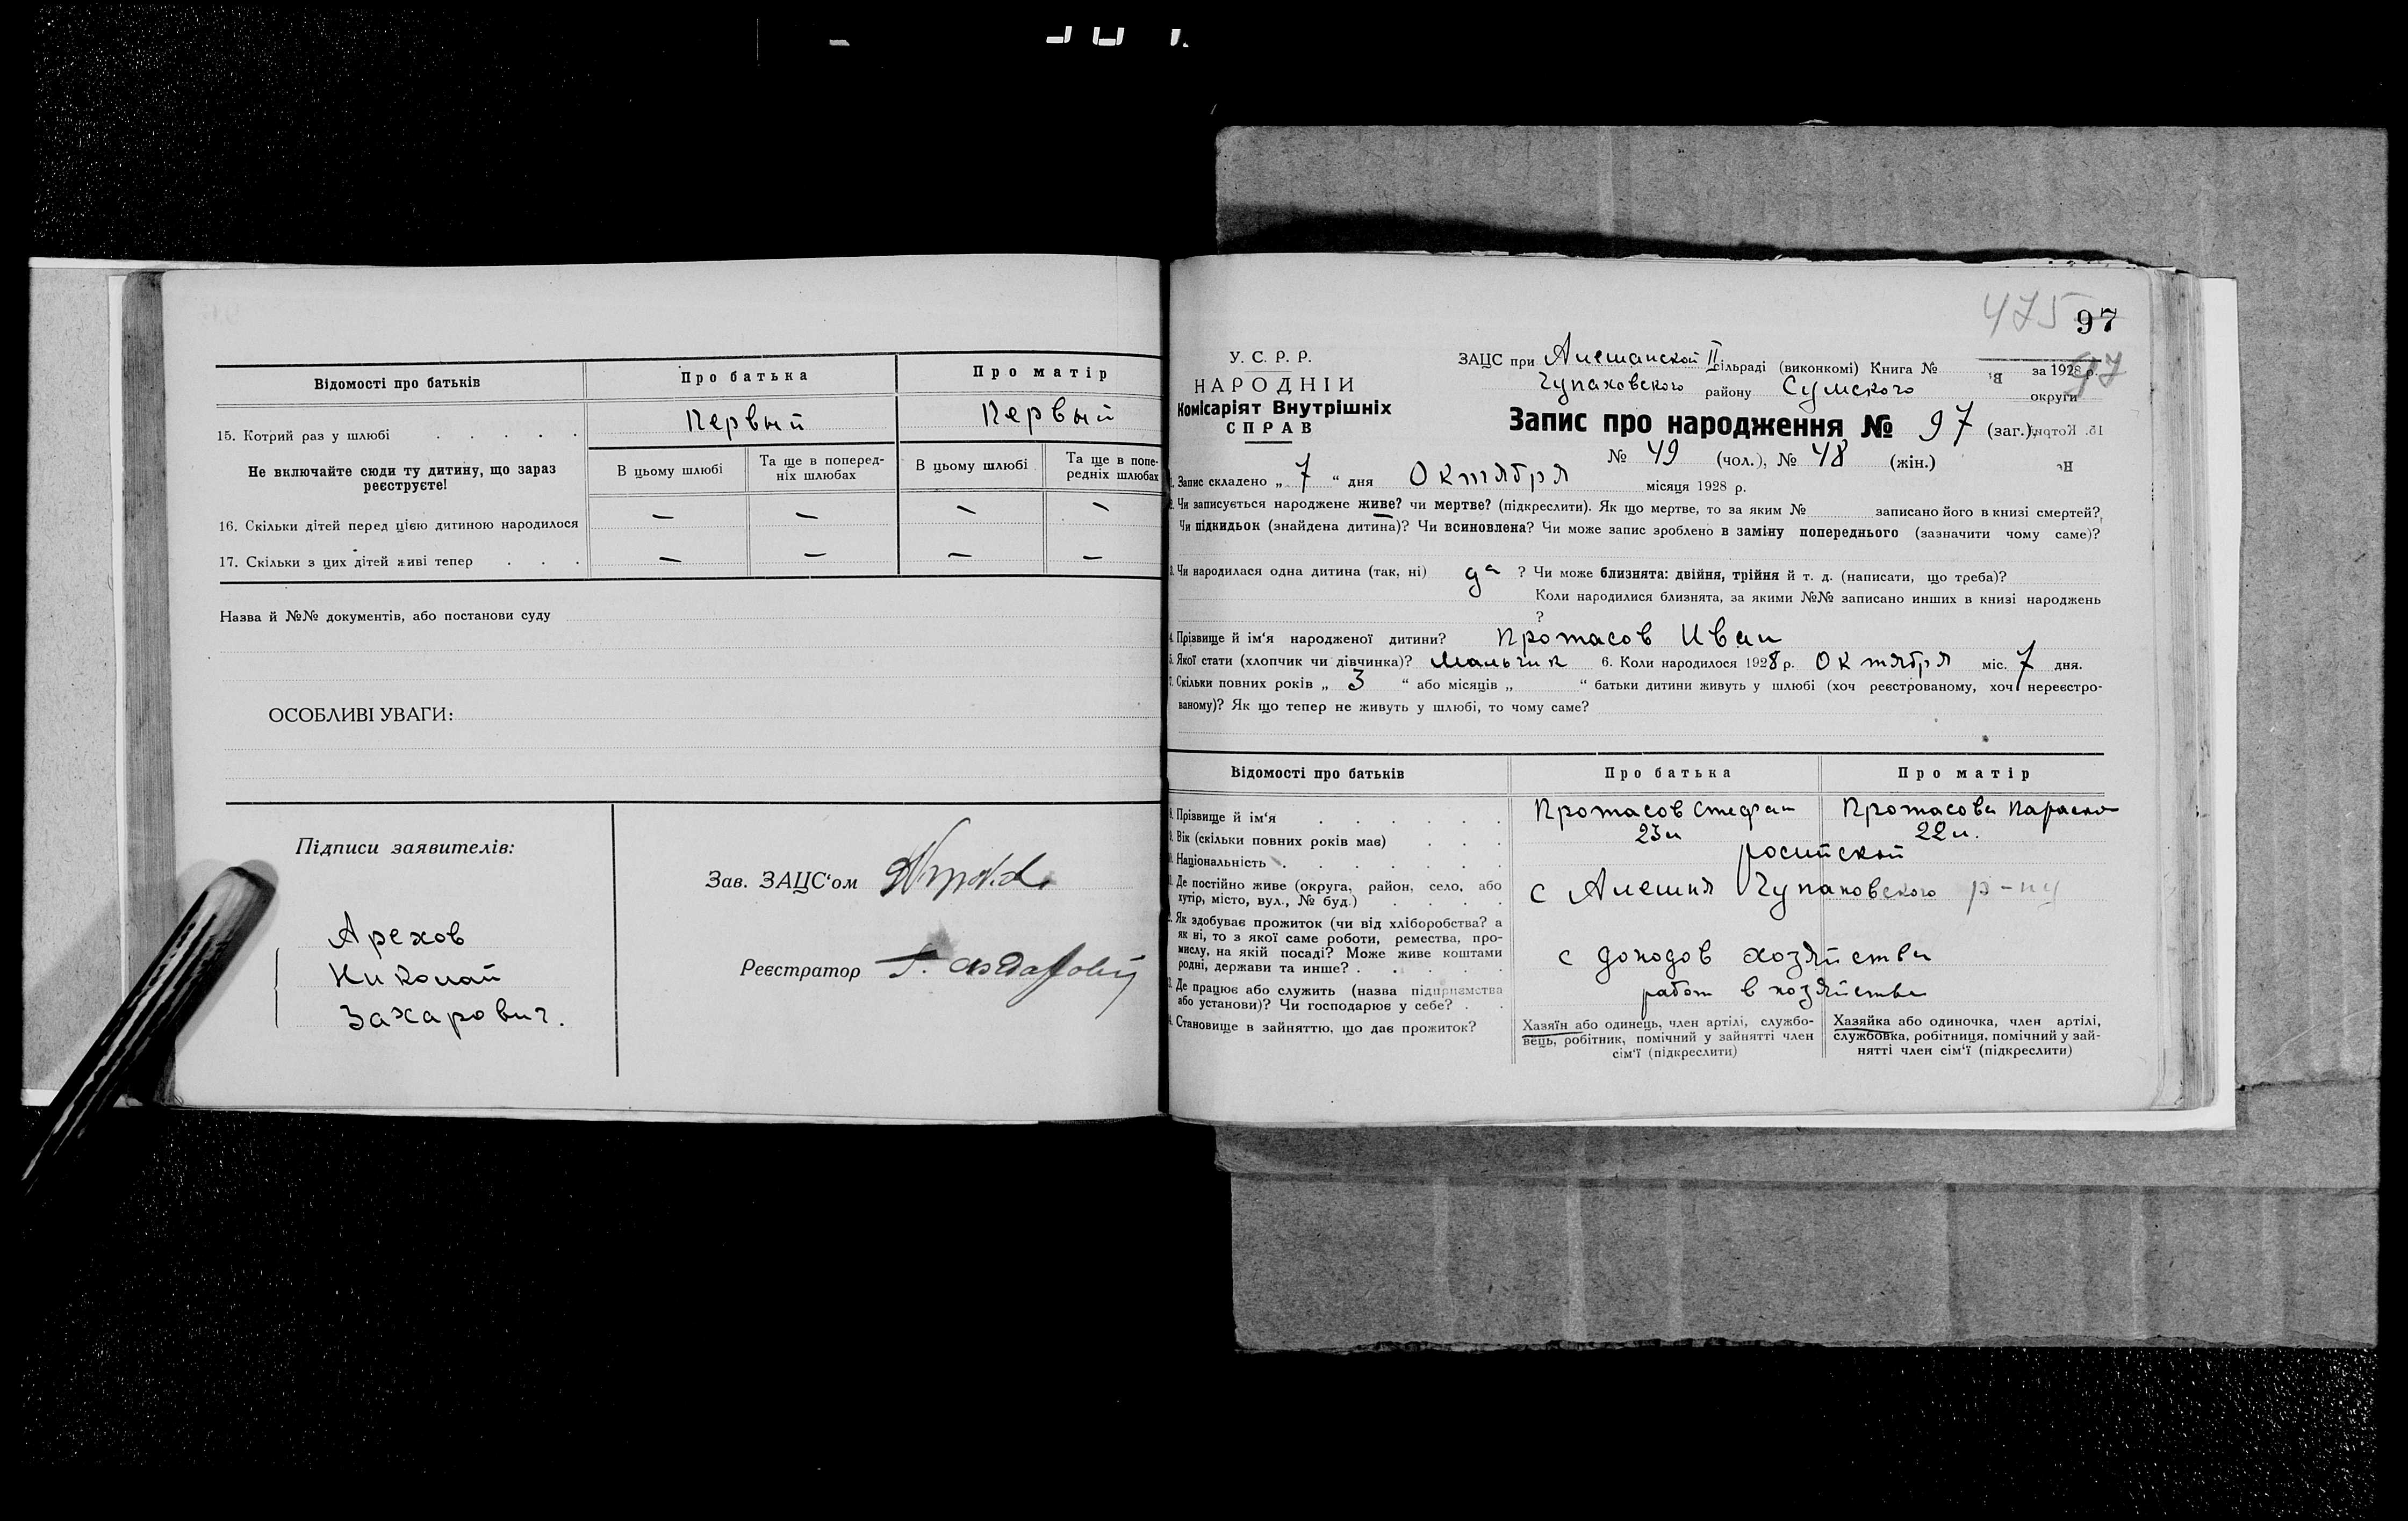 Відомості про батьків
Про батька
Про матір
15. Котрий раз у шлюбі
Первый
Первый
Не включайте сюди ту дитину, що зараз реєструєте!
В цьому шлюбі
Та ще в поперед-
ніх шлюбах
В цьому шлюбі
Та ще в попе-
редніх шлюбах
16. Скільки дітей перед цією дитиною народилося — — — —
17. Скільки з цих дітей живі тепер — — — —
Назва й №№ документів, або постанови суду
ОСОБЛИВІ УВАГИ:
Підписи заявителів:
Арехов
Николай
Захарович.
Зав. ЗАЦС'ом
Реєстратор
475 97
97
У. С. Р. Р.
НАРОДНІЙ
Комісаріят Внутрішніх
СПРАВ
ЗАЦС при Алешанской II сільраді (виконкомі) Книга № за 1928 р.
Чупаховского району Сумского округи
Запис про народження № 97 (заг.),
№ 49 (чол.), № 48 (жін.)
1. Запис складено „ 7 “ дня Октября місяця 1928 р.
2. Чи записується народжене живе? чи мертве? (підкреслити). Як що мертве, то за яким № записано його в книзі смертей?
Чи підкидьок (знайдена дитина)? Чи всиновлена? Чи може запис зроблено в заміну попереднього (зазначити чому саме)?
3. Чи народилася одна дитина (так, ні) да ? Чи може близнята: двійня, трійня й т. д. (написати, що треба)?
Коли народилися близнята, за якими №№ записано инших в книзі народжень
?
4. Прізвище й ім'я народженої дитини? Протасов Иван
5. Якої стати (хлопчик чи дівчинка)? Мальчик 6. Коли народилося 1928 р. Октября міс. 7 дня.
7. Скільки повних років „ 3 “ або місяців „ “ батьки дитини живуть у шлюбі (хоч реєстрованому, хоч нереєстро-
ваному)? Як що тепер не живуть у шлюбі, то чому саме?
Відомості про батьків
Про батька
Про матір
8. Прізвище й ім'я Протасов Стефан Протасова Параска
9. Вік (скільки повних років має) 23 л 22 л.
10. Національність росийской
11. Де постійно живе (округа, район, село, або
хутір, місто, вул., № буд.) с Алешня Чупаховского р-ну
12. Як здобуває прожиток (чи від хліборобства? а
як ні, то з якої саме роботи, ремества, про-
мислу, на якій посаді? Може живе коштами
родні, держави та инше? с доходов хозяйства
13. Де працює або служить (назва підприємства
або установи)? Чи господарює у себе? работ в хозяйстве
14. Становище в зайняттю, що дає прожиток?
Хазяїн або одинець, член артілі, службо-
вець, робітник, помічний у зайнятті член
сім'ї (підкреслити)
Хазяйка або одиночка, член артілі,
службовка, робітниця, помічний у зай-
нятті член сім'ї (підкреслити)